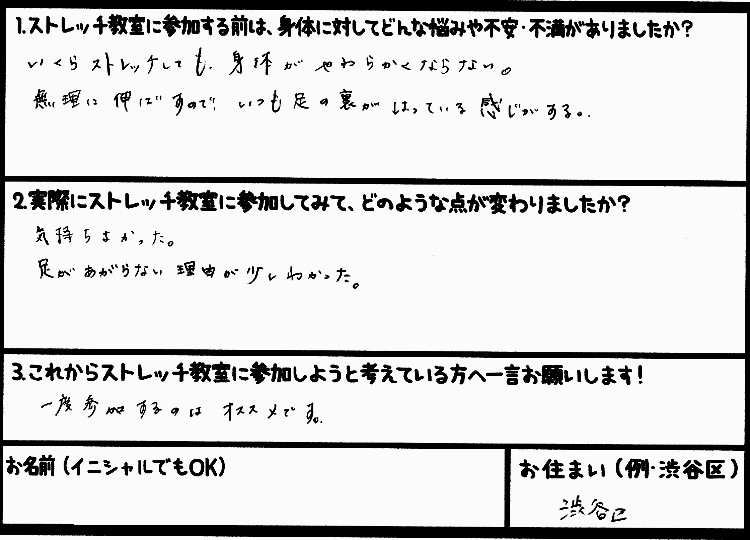 1.ストレッチ教室に参加する前は、身体に対してどんな悩みや不安・不満がありましたか?
いくらストレッチしても、身体がやわらかくならない。
無理に伸ばすので、いつも足の裏がはっている感じがする。
2.実際にストレッチ教室に参加してみて、どのような点が変わりましたか?
気持ちよかった。
足があがらない理由が少しわかった。
3.これからストレッチ教室に参加しようと考えている方へ一言お願いします!
一度参加するのはオススメです。
お名前(イニシャルでもOK)
お住まい(例・渋谷区)
渋谷区